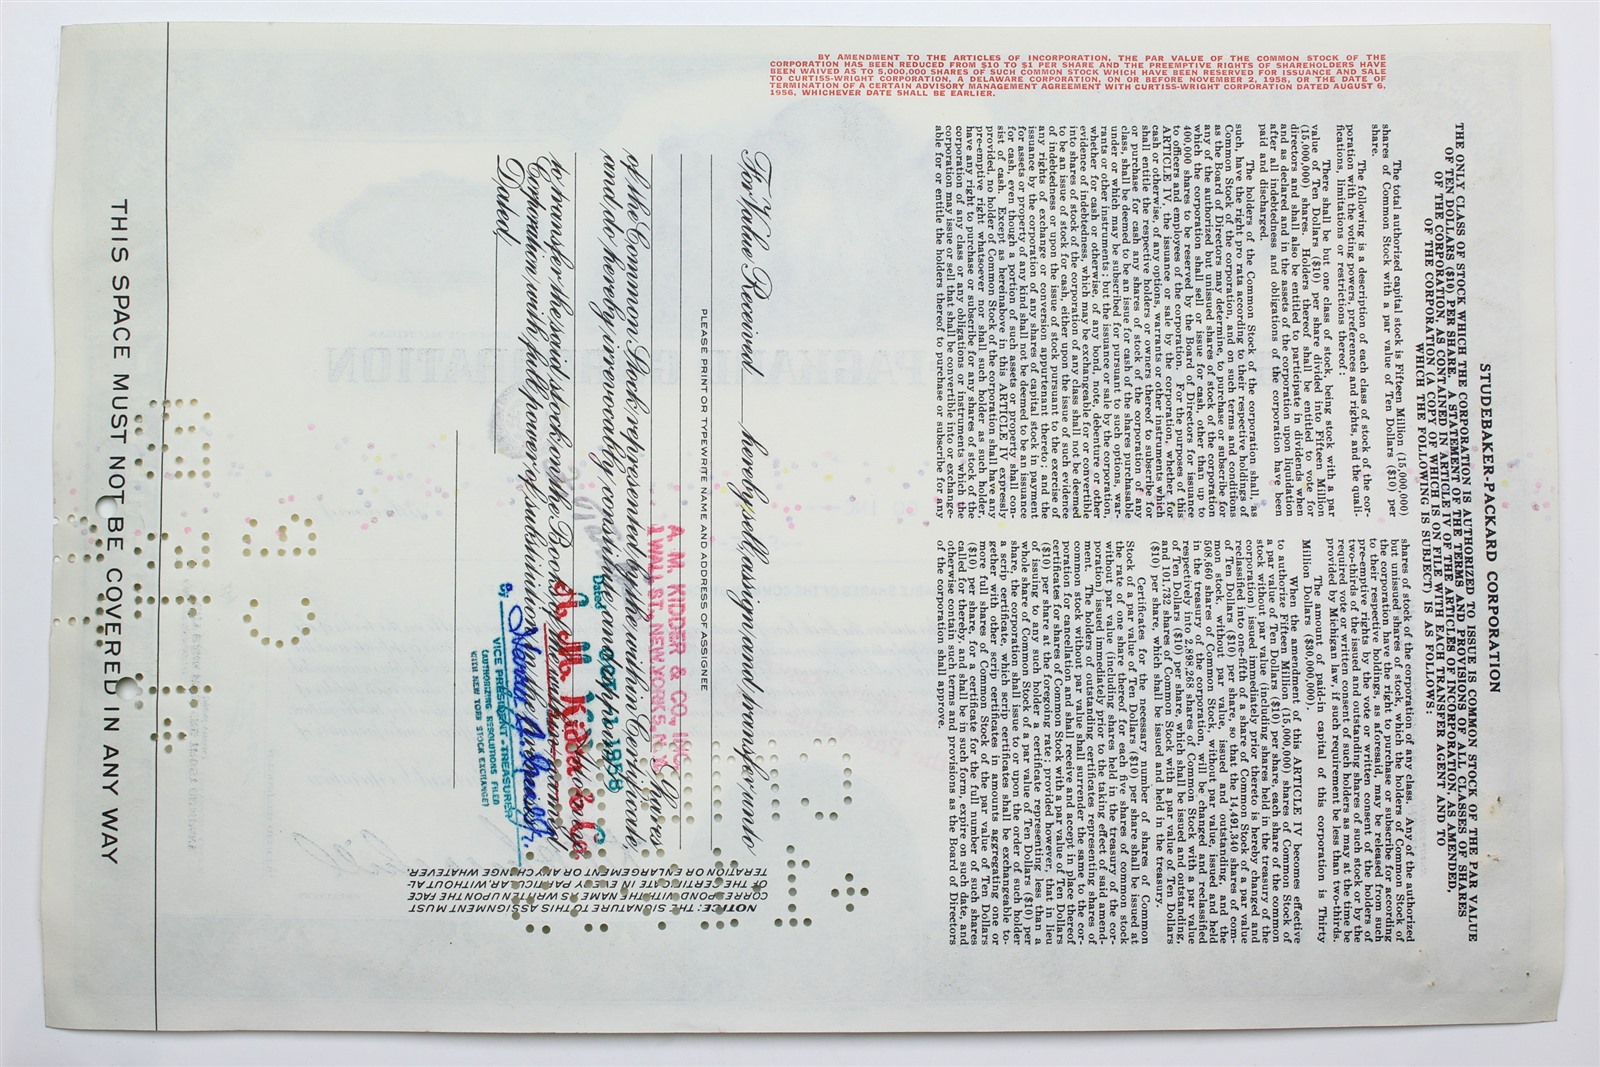 BY AMENDMENT TO THE ARTICLES OF INCORPORATION, THE PAR VALUE OF THE COMMON STOCK OF THE
CORPORATION HAS BEEN REDUCED FROM $10 TO $1 PER SHARE AND THE PREEMPTIVE RIGHTS OF SHAREHOLDERS HAVE
BEEN WAIVED AS TO 5,000,000 SHARES OF SUCH COMMON STOCK WHICH HAVE BEEN RESERVED FOR ISSUANCE AND SALE
TO CURTISS-WRIGHT CORPORATION, A DELAWARE CORPORATION, ON OR BEFORE NOVEMBER 2, 1958, OR THE DATE OF
TERMINATION OF A CERTAIN ADVISORY MANAGEMENT AGREEMENT WITH CURTISS-WRIGHT CORPORATION DATED AUGUST 6,
1956, WHICHEVER DATE SHALL BE EARLIER.
STUDEBAKER-PACKARD CORPORATION
THE ONLY CLASS OF STOCK WHICH THE CORPORATION IS AUTHORIZED TO ISSUE IS COMMON STOCK OF THE PAR VALUE
OF TEN DOLLARS ($10) PER SHARE. A STATEMENT OF THE TERMS AND PROVISIONS OF ALL CLASSES OF SHARES
OF THE CORPORATION, AS CONTAINED IN ARTICLE IV OF THE ARTICLES OF INCORPORATION, AS AMENDED,
OF THE CORPORATION (A COPY OF WHICH IS ON FILE WITH EACH TRANSFER AGENT AND TO
WHICH THE FOLLOWING IS SUBJECT) IS AS FOLLOWS:
The total authorized capital stock is Fifteen Million (15,000,000)
shares of Common Stock with a par value of Ten Dollars ($10) per
share.
The following is a description of each class of stock of the cor-
poration with the voting powers, preferences and rights, and the quali-
fications, limitations or restrictions thereof:
There shall be but one class of stock, being stock with a par
value of Ten Dollars ($10) per share divided into Fifteen Million
(15,000,000) shares. Holders thereof shall be entitled to vote for
directors and shall also be entitled to participate in dividends when
and as declared and in the assets of the corporation upon liquidation
after all indebtedness and obligations of the corporation have been
paid and discharged.
The holders of the Common Stock of the corporation shall, as
such, have the right pro rata according to their respective holdings of
Common Stock of the corporation, and on such terms and conditions
as the Board of Directors may determine, to purchase or subscribe for
any of the authorized but unissued shares of stock of the corporation
which the corporation shall sell or issue for cash, other than up to
400,000 shares to be reserved by the Board of Directors for issuance
to officers and employees of the corporation. For the purposes of this
ARTICLE IV, the issuance or sale by the corporation, whether for
cash or otherwise, of any options, warrants or other instruments which
shall entitle the respective holders or owners thereof to subscribe for
or purchase for cash any shares of stock of the corporation of any
class, shall be deemed to be an issue for cash of the shares purchasable
under or which may be subscribed for pursuant to such options, war-
rants or other instruments; but the issuance or sale by the corporation,
whether for cash or otherwise, of any bond, note, debenture or other
evidence of indebtedness, which may be exchangeable for or convertible
into shares of stock of the corporation of any class shall not be deemed
to be an issue of stock for cash, either upon the issue of such evidence
of indebtedness or upon the issue of stock pursuant to the exercise of
any rights of exchange or conversion appurtenant thereto; and the
issuance by the corporation of any shares of capital stock in payment
for assets or property of any kind shall not be deemed to be an issuance
for cash, even though a portion of such assets or property shall con-
sist of cash. Except as hereinabove in this ARTICLE IV expressly
provided, no holder of Common Stock of the corporation shall have any
pre-emptive right whatsoever nor shall any such holder, as such holder,
have any right to purchase or subscribe for any shares of stock of the
corporation of any class or any obligations or instruments which the
corporation may issue or sell that shall be convertible into or exchange-
able for or entitle the holders thereof to purchase or subscribe for any
shares of stock of the corporation of any class. Any of the authorized
but unissued shares of stock, which the holders of Common Stock of
the corporation have the right to purchase or subscribe for according
to their respective holdings, as aforesaid, may be released from such
pre-emptive rights by the vote or written consent of the holders of
two-thirds of the issued and outstanding shares of such stock or by the
required vote or written consent of such holders as may at the time be
provided by Michigan law, if such requirement be less than two-thirds.
The amount of paid-in capital of this corporation is Thirty
Million Dollars ($30,000,000).
When the amendment of this ARTICLE IV becomes effective
to authorize Fifteen Million (15,000,000) shares of Common Stock of
a par value of Ten Dollars ($10) per share, each share of the common
stock without par value (including shares held in the treasury of the
corporation) issued immediately prior thereto is hereby changed and
reclassified into one-fifth of a share of Common Stock of a par value
of Ten Dollars ($10) per share, so that the 14,491,340 shares of com-
mon stock, without par value, issued and outstanding, and the
508,660 shares of Common Stock, without par value, issued and held
in the treasury of the corporation, will be changed and reclassified
respectively into 2,898,268 shares of Common Stock with a par value
of Ten Dollars ($10) per share, which shall be issued and outstanding,
and 101,732 shares of Common Stock with a par value of Ten Dollars
($10) per share, which shall be issued and held in the treasury.
Certificates for the necessary number of shares of Common
Stock of a par value of Ten Dollars ($10) per share shall be issued at
the rate of one share thereof for each five shares of common stock
without par value (including shares held in the treasury of the cor-
poration) issued immediately prior to the taking effect of said amend-
ment. The holders of outstanding certificates representing shares of
common stock without par value shall surrender the same to the cor-
poration for cancellation and shall receive and accept in place thereof
certificates for shares of Common Stock with a par value of Ten Dollars
($10) per share at the foregoing rate; provided however, that in lieu
of issuing to any such holder a certificate representing less than a
whole share of Common Stock of a par value of Ten Dollars ($10) per
share, the corporation shall issue to or upon the order of such holder
a scrip certificate which scrip certificates shall be exchangeable to-
gether with other scrip certificates in amounts aggregating one or
more full shares of Common Stock of the par value of Ten Dollars
($10) per share, for a certificate for the full number of such shares
called for thereby, and shall be in such form, expire on such date, and
otherwise contain such terms and provisions as the Board of Directors
of the corporation shall approve.
For Value Received hereby sell, assign, and transfer unto
PLEASE PRINT OR TYPEWRITE NAME AND ADDRESS OF ASSIGNEE
A. M. KIDDER & CO., INC.
1 WALL ST., NEW YORK 5, N. Y.
Shares
of the Common Stock represented by the within Certificate,
and do hereby irrevocably constitute and appoint
Dated
1958
to transfer the said stock on the Books of the within named
Corporation, with full power of substitution in the premises.
Dated
A. M. Kidder & Co.
By
VICE PRESIDENT-TREASURER
(AUTHORIZING RESOLUTIONS FILED
WITH NEW YORK STOCK EXCHANGE)
NOTICE: THE SIGNATURE TO THIS ASSIGNMENT MUST
CORRESPOND WITH THE NAME AS WRITTEN UPON THE FACE
OF THE CERTIFICATE IN EVERY PARTICULAR, WITHOUT AL-
TERATION OR ENLARGEMENT OR ANY CHANGE WHATEVER.
THIS SPACE MUST NOT BE COVERED IN ANY WAY